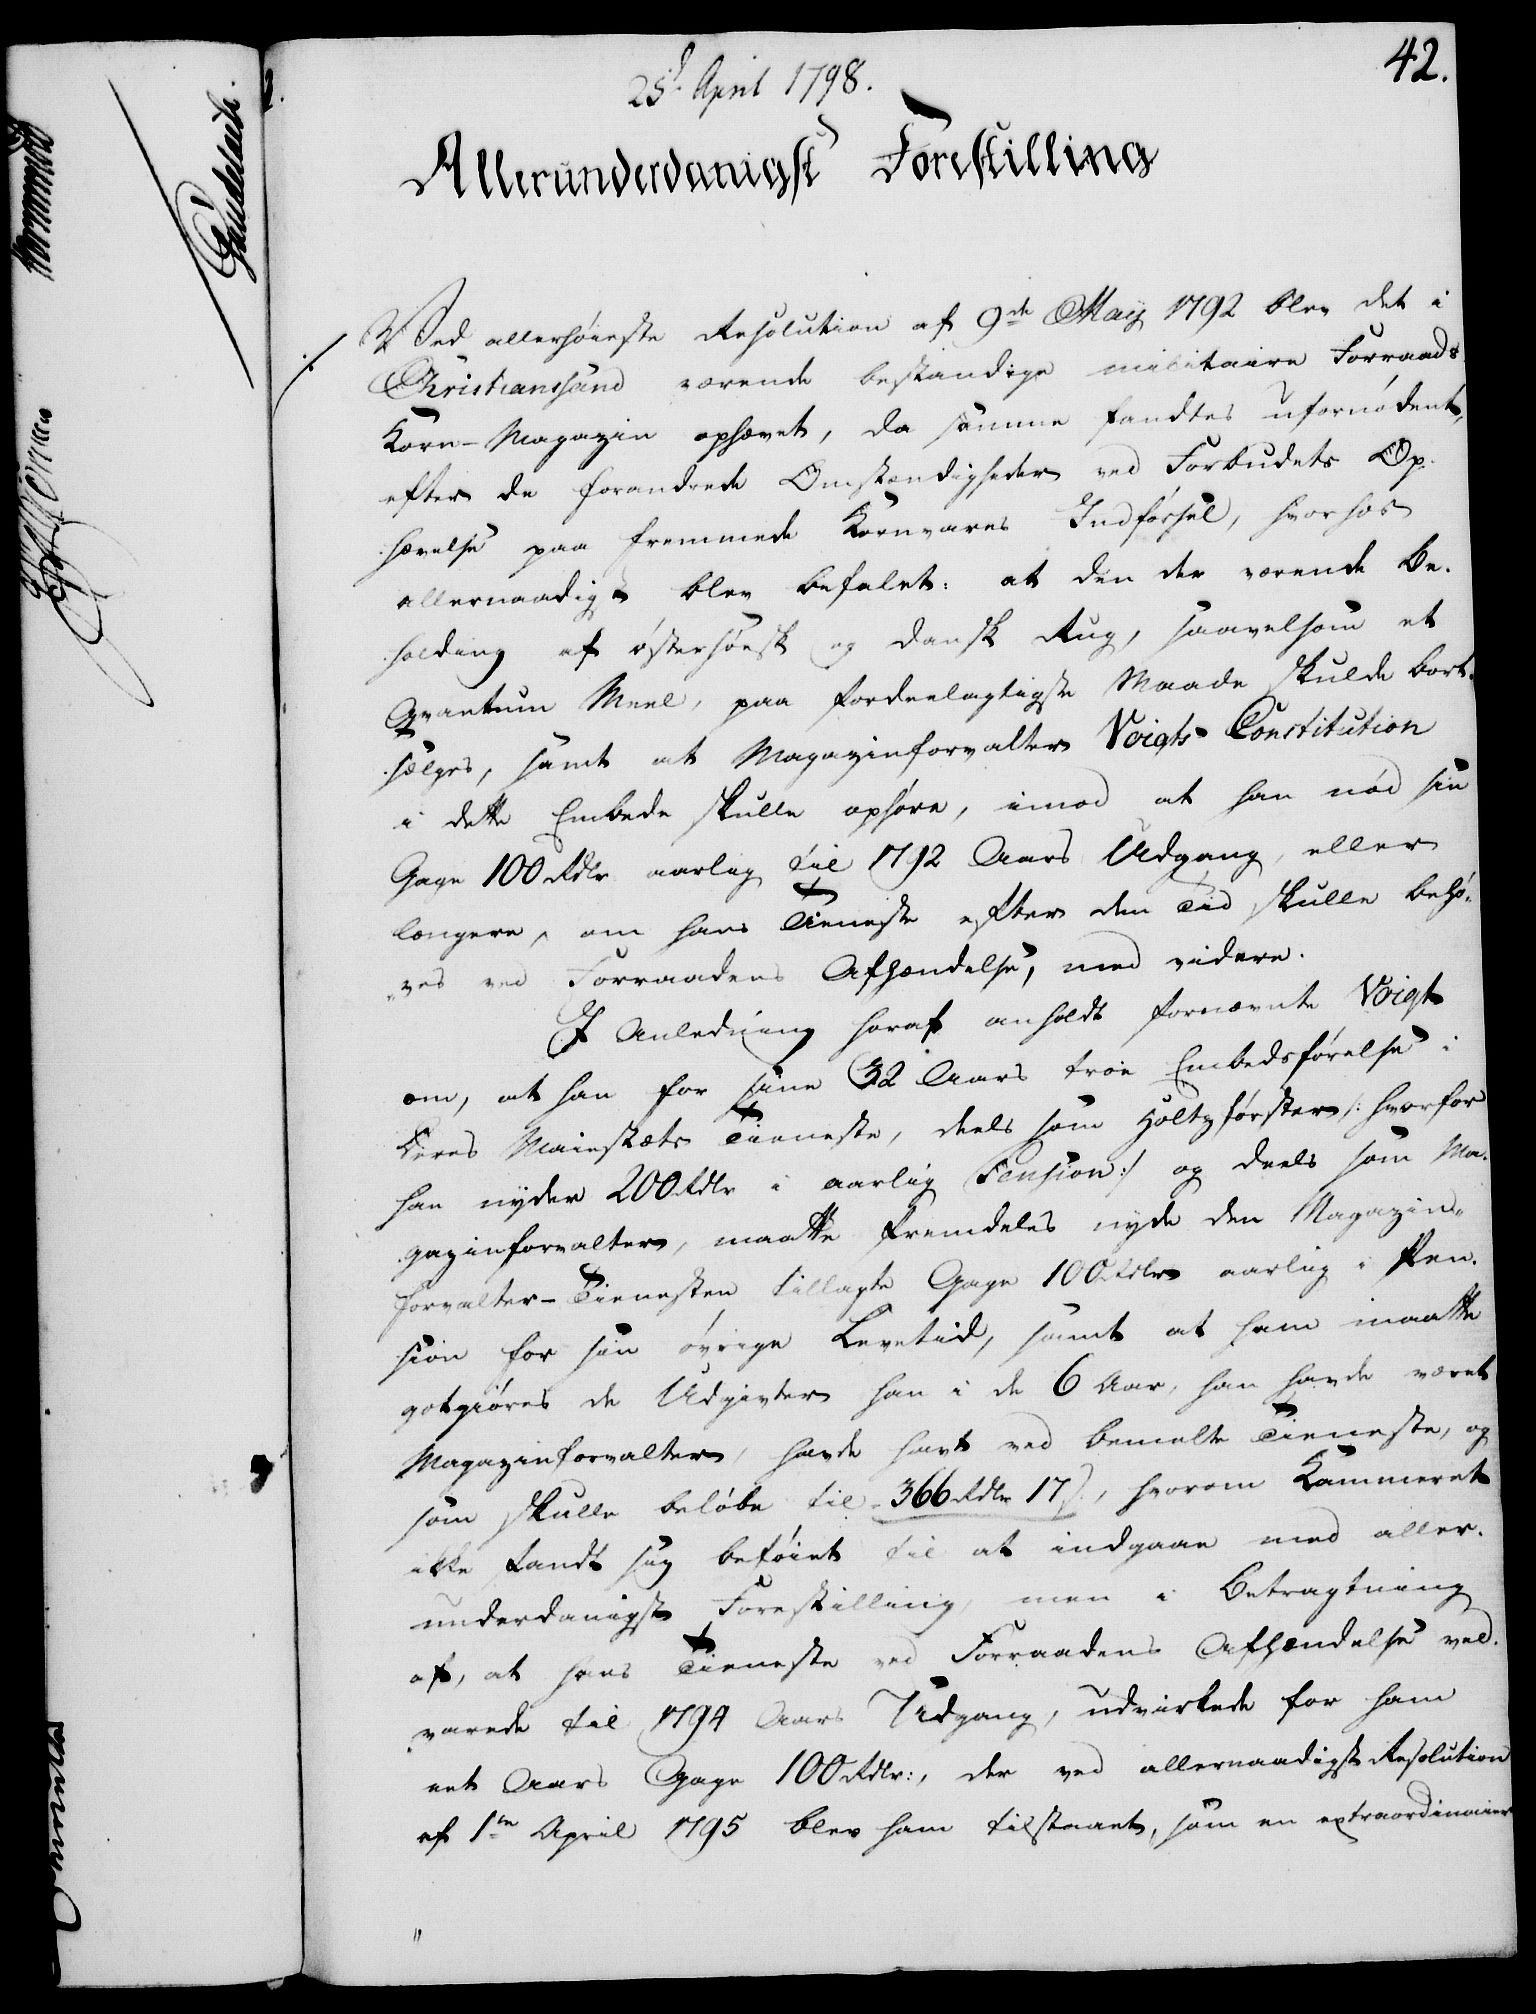 42.
25d April 1798.
Allerunderdanigst Forestilling
Ved allerhøieste Resolution af 9de Maij 1792 blev det i
Christianssand værende bestandige militaire Forraads
Korn-Magazin ophævet, da samme fandtes ufornødent,
efter de forandrede Omstændigheder ved Forbudets Op-
hævelse paa fremmede Kornvares Indførsel, hvorhos
allernaadigst blev befalet: at den der værende Be-
holding af østersøisk og dansk Rug, saavelsom et
Qvantum Meel, paa fordeelagtigste Maade skulde bort-
sælges, samt at Magazinforvalter Voigts Constitution
i dette Embede skulle ophøre, imod at han nød sin
Gage 100 Rdlr aarlig til 1792 Aars Udgang, eller
længere, om hans Tieneste efter den Tid skulle behø-
ves ved Forraadens Afhændelse, med videre.
I Anledning heraf anholdt fornævnte Voigt
om, at han for sine 32 Aars troe Embedsførelse i
Deres Maiestæts Tieneste, deels som Holtzførster /: hvorfor
han nyder 200 Rdlr i aarlig Pension :/ og deels som Ma-
gazinforvalter, maatte fremdeles nyde den Magazin-
forvalter-Tienesten tillagte Gage 100 Rdlr aarlig i Pen-
sion for sin øvrige Levetid, samt at ham maatte
gotgiøres de Udgivter han i de 6 Aar, han havde været
Magazinforvalter, havde havt ved bemelte Tieneste, og
som skulle beløbe til 366 Rdlr 17 s., hvorom Kammeret
ikke fandt sig beføiet til at indgaae med aller-
underdanigst Forestilling, men i Betragtning
af, at hans Tieneste ved Forraadens Afhændelse ved-
varede til 1794 Aars Udgang, udvirkede for ham
eet Aars Gage 100 Rdlr:, der ved allernaadigst Resolution
af 1te April 1795 blev ham tilstaaet, som en extraordinair